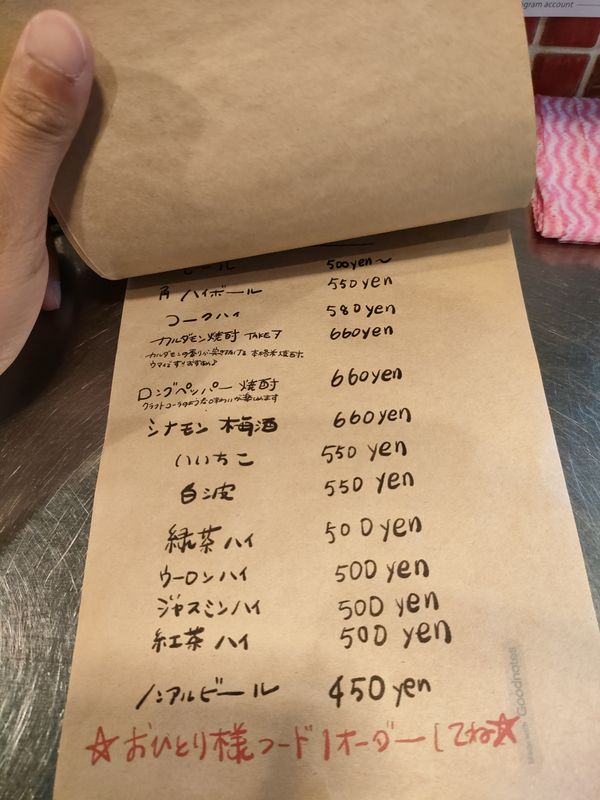 gram account
ビール 500yen〜
角ハイボール 550yen
コークハイ 580yen
カルダモン焼酎 TAKE7 660yen
カルダモンの香りが突きぬける 本格米焼酎。
ウマイですぅおすすめ♪
ロングペッパー焼酎 660yen
クラフトコーラのような味わいが楽しめます
シナモン梅酒 660yen
いいちこ 550yen
白波 550yen
緑茶ハイ 500yen
ウーロンハイ 500yen
ジャスミンハイ 500yen
紅茶ハイ 500yen
ノンアルビール 450yen
☆おひとり様フード1オーダーしてね☆
Made with Goodnotes